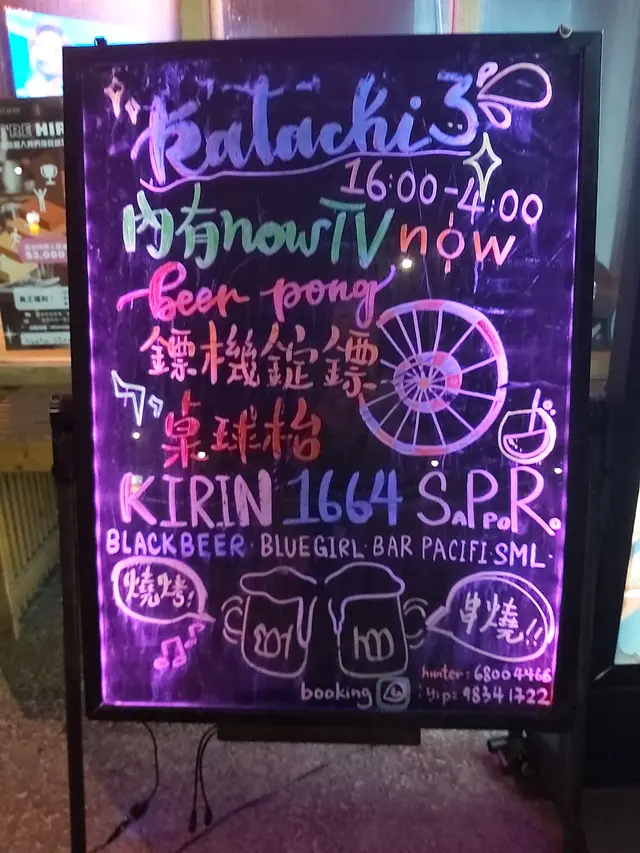 Katachi 3
16:00-4:00
內有now TV now
beer pong
鏢機錠鏢
桌球枱
KIRIN 1664 S.A.P.Po.R.o
BLACKBEER · BLUEGIRL · BAR PACIFI · SML ·
燒烤!
串燒!!
booking
hunter: 6800 4466
Yip: 9834 1722